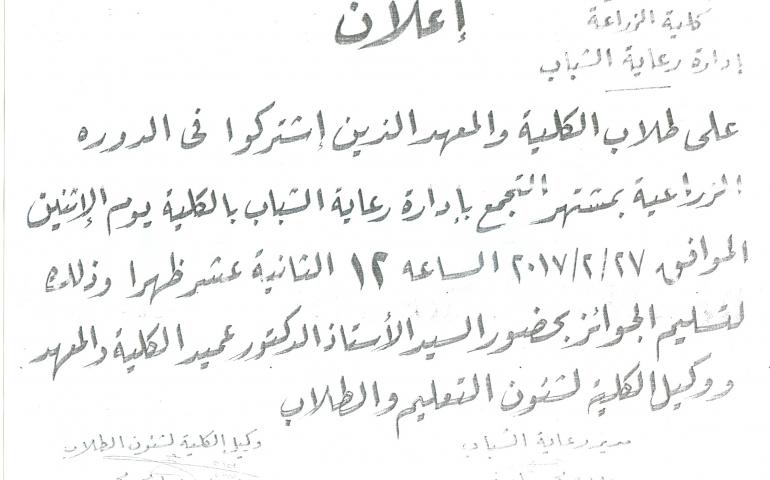 كلية الزراعة
إعلان
إدارة رعاية الشباب
على طلاب الكلية والمعهد الذين إشتركوا فى الدوره
الزراعية بمشتهر التجمع بإدارة رعاية الشباب بالكلية يوم الإثنين
الموافق ٢٠١٧/٢/٢٧ الساعه ١٢ الثانية عشر ظهرا وذلك
لتسليم الجوائز بحضور السيد الأستاذ الدكتور عميد الكلية والمعهد
ووكيل الكلية لشئون التعليم والطلاب
مدير رعاية الشباب وكيل الكلية لشئون الطلاب